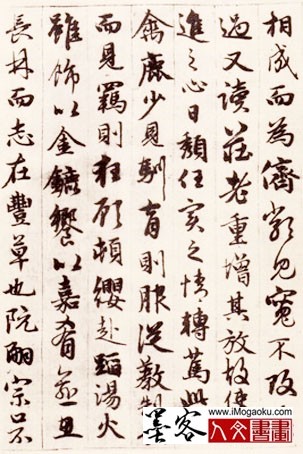 相成而為儕類見寬不攻
過又讀莊老重增其放故使
進之心日頹任實之情轉篤此
禽鹿少見馴育則服從教制
而見羈則狂顧頓纓赴蹈湯火
雖飾以金鑣饗以嘉肴愈
長林而志在豐草也阮嗣宗口不
墨客
www.iMogaoku.com
人文書畫